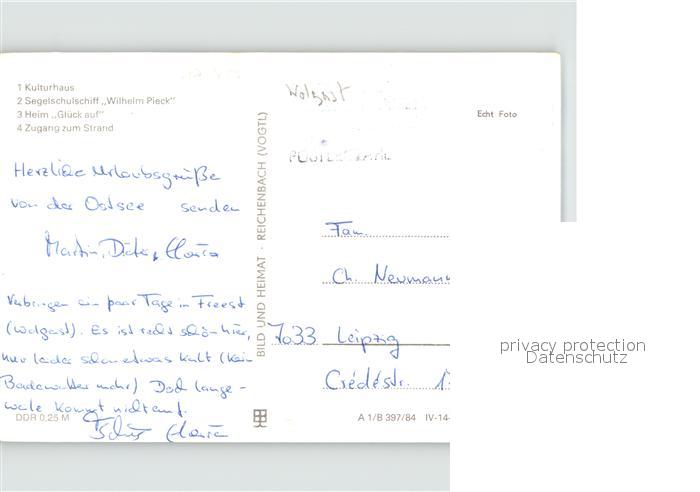 1 Kulturhaus
2 Segelschulschiff „Wilhelm Pieck"
3 Heim „Glück auf"
4 Zugang zum Strand
Herzliche Urlaubsgrüße
von der Ostsee senden
Martin, Dieter,
Verbringen ein paar Tage in Freest
(Wolgast). Es ist recht schön hier,
nur leider schon etwas kalt (kein
Badewetter mehr). Doch lange-
weile kommt nicht auf.
Tschüß
DDR 0,25 M
BILD UND HEIMAT · REICHENBACH (VOGTL)
Wolgast
Echt Foto
Fam.
Ch. Neumann
7033 Leipzig
Crédéstr.
A 1/B 397/84 IV-14-
privacy protection
Datenschutz